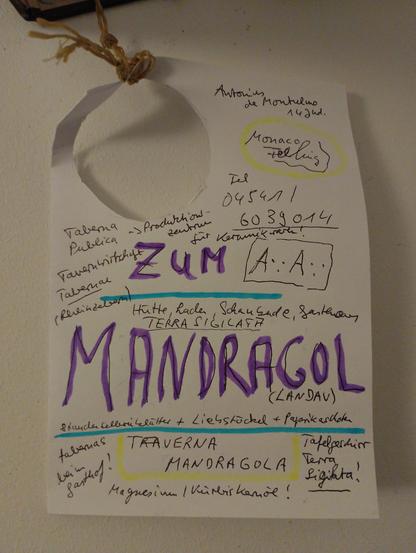 Antonius
de Montulmo
14 Jhd.
Monaco
Tel
04541/
6039014
Taberna
Publica
-> Produktions-
zentrum
für Keramikwaren!
Tavernwirtschaft
Tabernae
(Rheinzabern)
ZUM
A∴A∴
Hütte, Laden, Schaubude, Gasthaus
TERRA SIGILATA
MANDRAGOL
(LANDAU)
+ Liebstöckel + Paprikaschoten
tabernas
beim
Gasthof!
TAVERNA
MANDRAGOLA
Tafelgeschirr
Terra
Sigilata!
Magnesium / Kürbiskernöl!